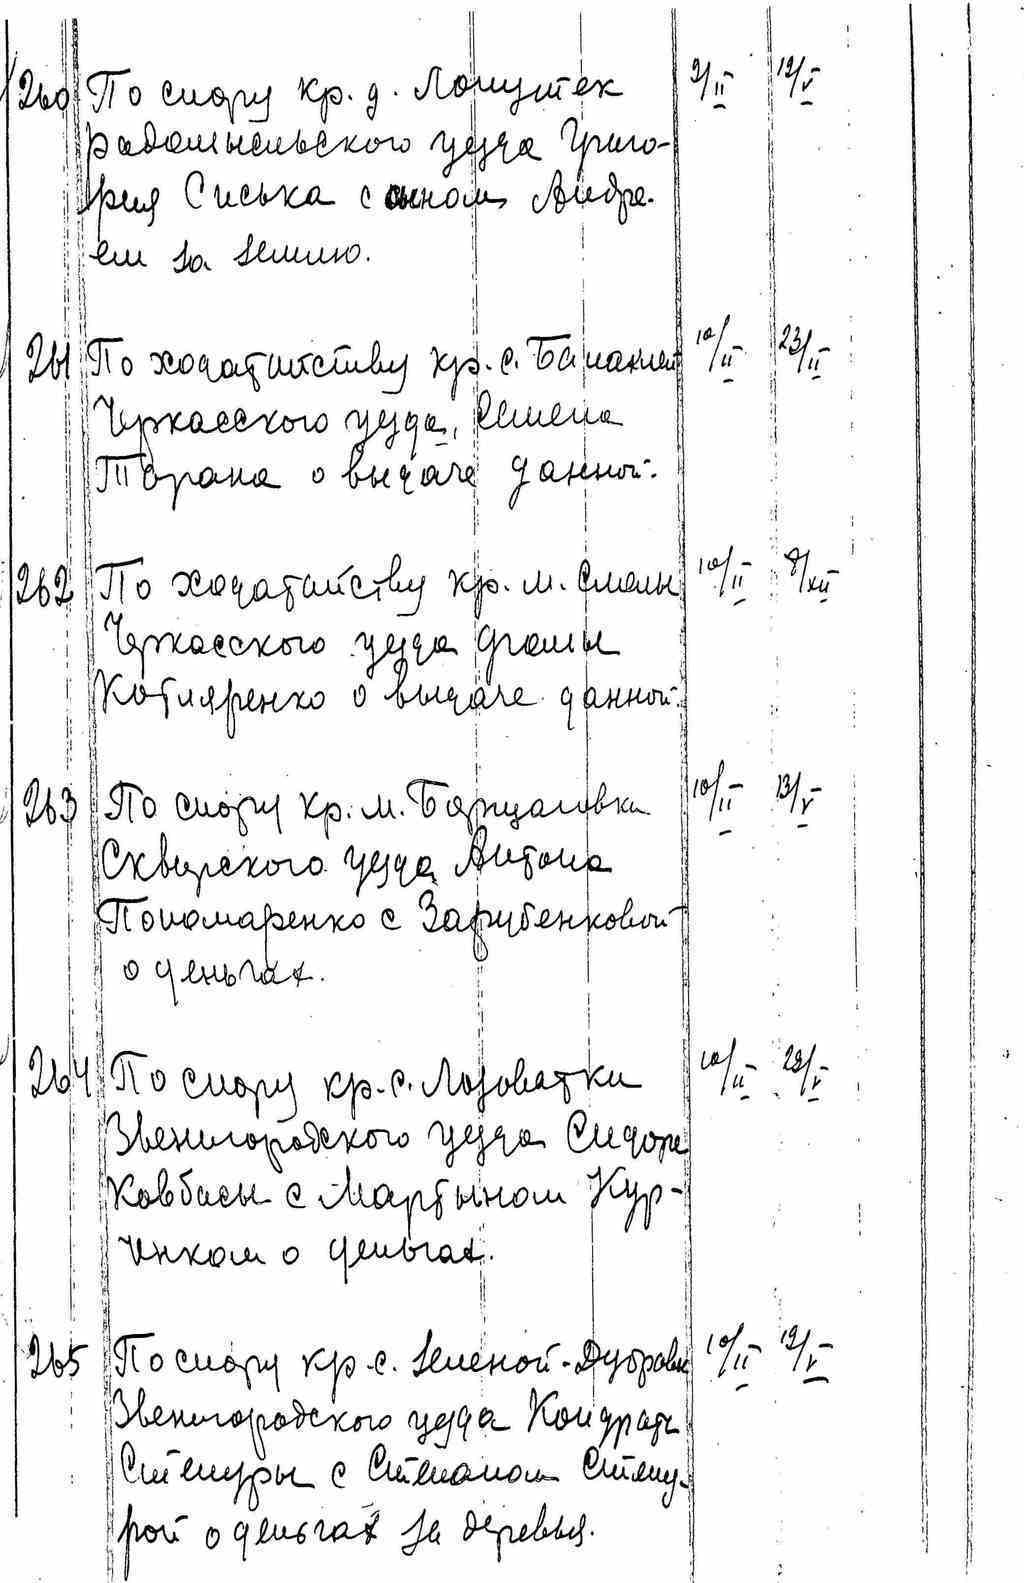 260 По спору кр. д. Лопушек 9/II 19/V
Радомысльского уезда Григо-
рия Сиська с сыном Андре-
ем за землю.
261 По ходатайству кр. с. Балаклеи 10/II 23/II
Черкасского уезда, Семена
Тарана о выдаче данной.
262 По ходатайству кр. м. Смелы 10/II 8/XII
Черкасского уезда Фомы
Котляренко о выдаче данной.
263 По спору кр. м. 10/II 13/V
Сквирского уезда Антона
Пономаренко с Зарубенковой
о деньгах.
264 По спору кр. с. Лозоватки 10/II 29/V
Звенигородского уезда Сидора
Ковбасы с Мартыном Кур-
ченком о деньгах.
265 По спору кр. с. Зеленой-Дубровки 10/II 19/V
Звенигородского уезда Кондрата
с Степаном
рой о деньгах за деревья.